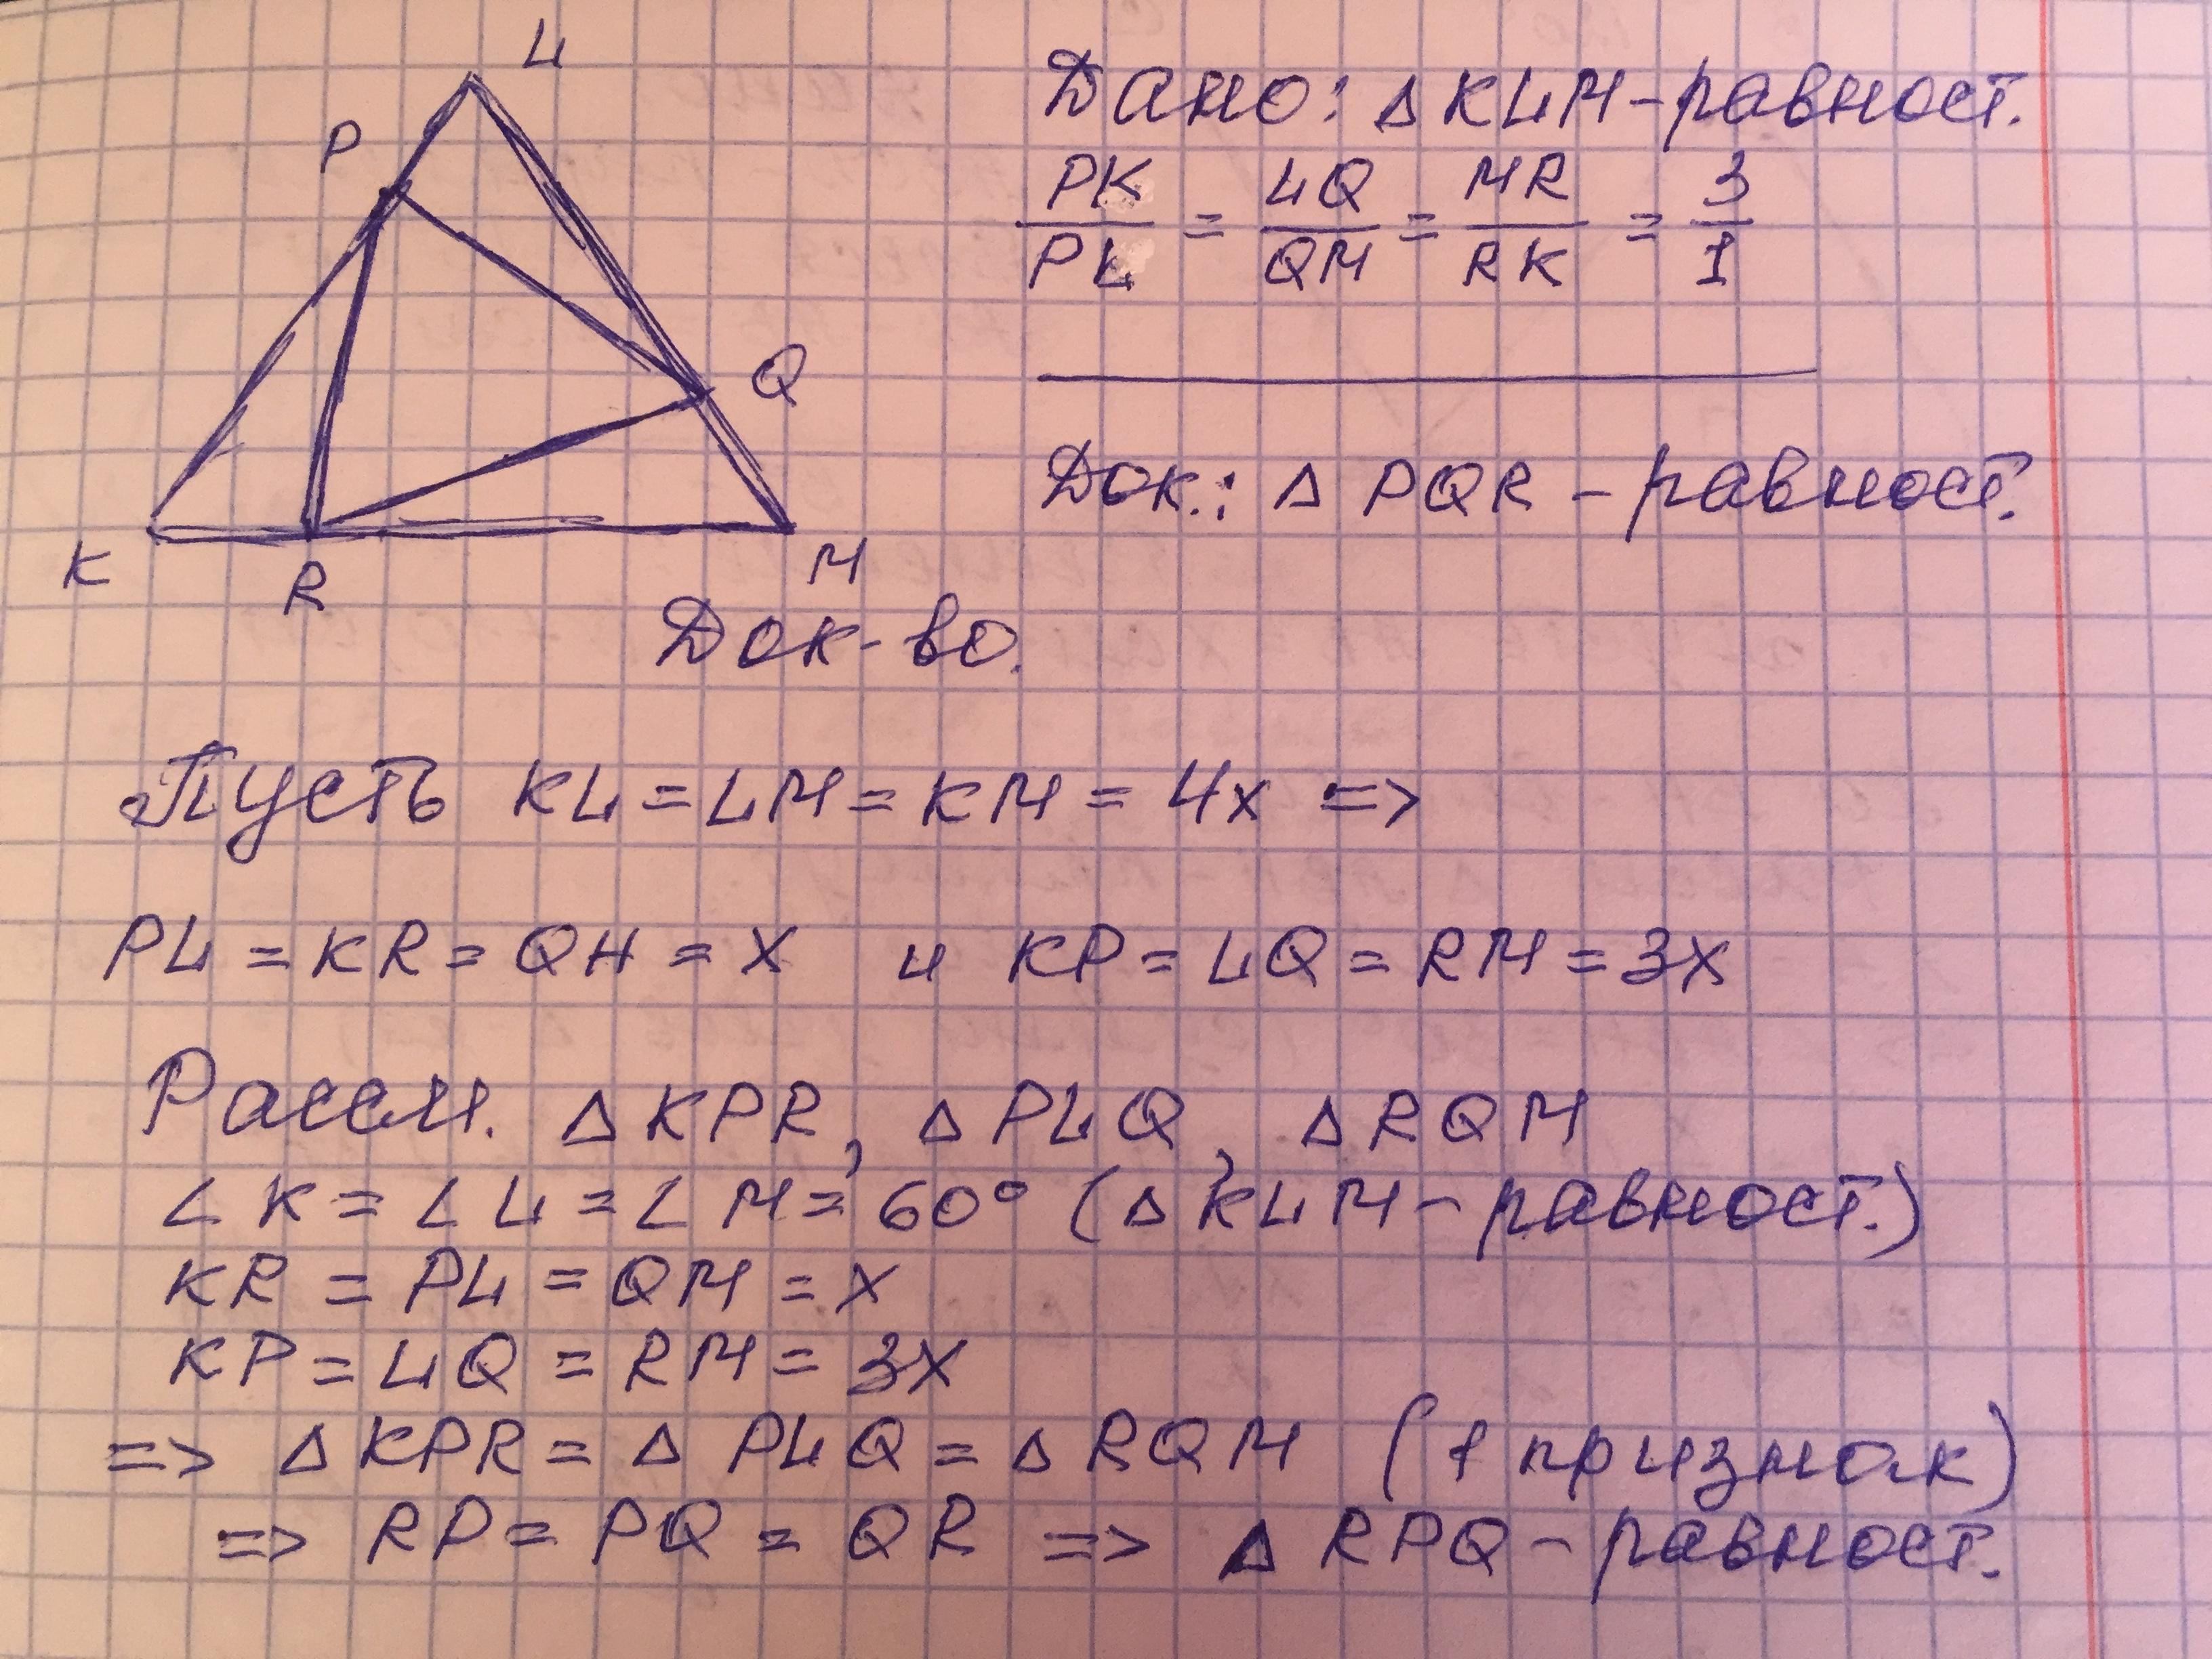 L
P
Q
K
R
M
Дано: Δ KLM - равност.
PK/PL = LQ/QM = MR/RK = 3/1
Док.: Δ PQR - равност.
Док-во.
Пусть KL = LM = KM = 4x =>
PL = KR = QH = x и KP = LQ = RM = 3x
Рассм. Δ KPR, Δ PLQ, Δ RQM
∠ K = ∠ L = ∠ M = 60° (Δ KLM - равност.)
KR = PL = QM = x
KP = LQ = RM = 3x
=> Δ KPR = Δ PLQ = Δ RQM (1 признак)
=> RP = PQ = QR => Δ RPQ - равност.